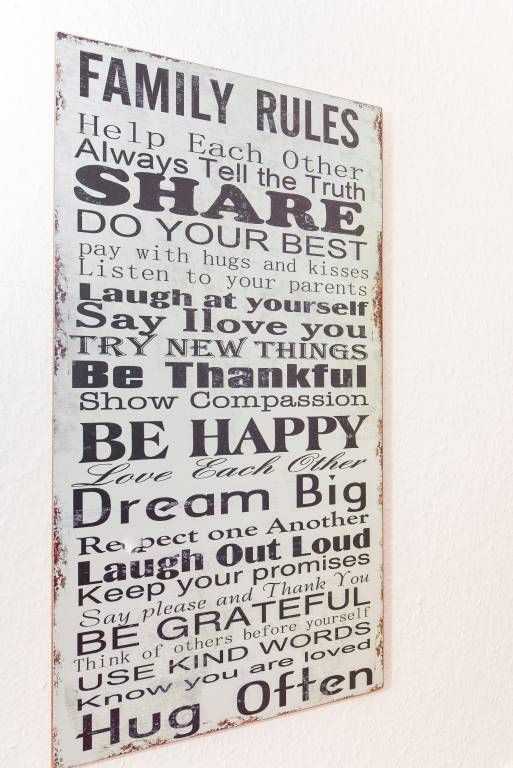 FAMILY RULES
Help Each Other
Always Tell the Truth
SHARE
DO YOUR BEST
pay with hugs and kisses
Listen to your parents
Laugh at yourself
Say Ilove you
TRY NEW THINGS
Be Thankful
Show Compassion
BE HAPPY
Love Each Other
Dream Big
Respect one Another
Laugh Out Loud
Keep your promises
Say please and Thank You
BE GRATEFUL
Think of others before yourself
USE KIND WORDS
Know you are loved
Hug Often